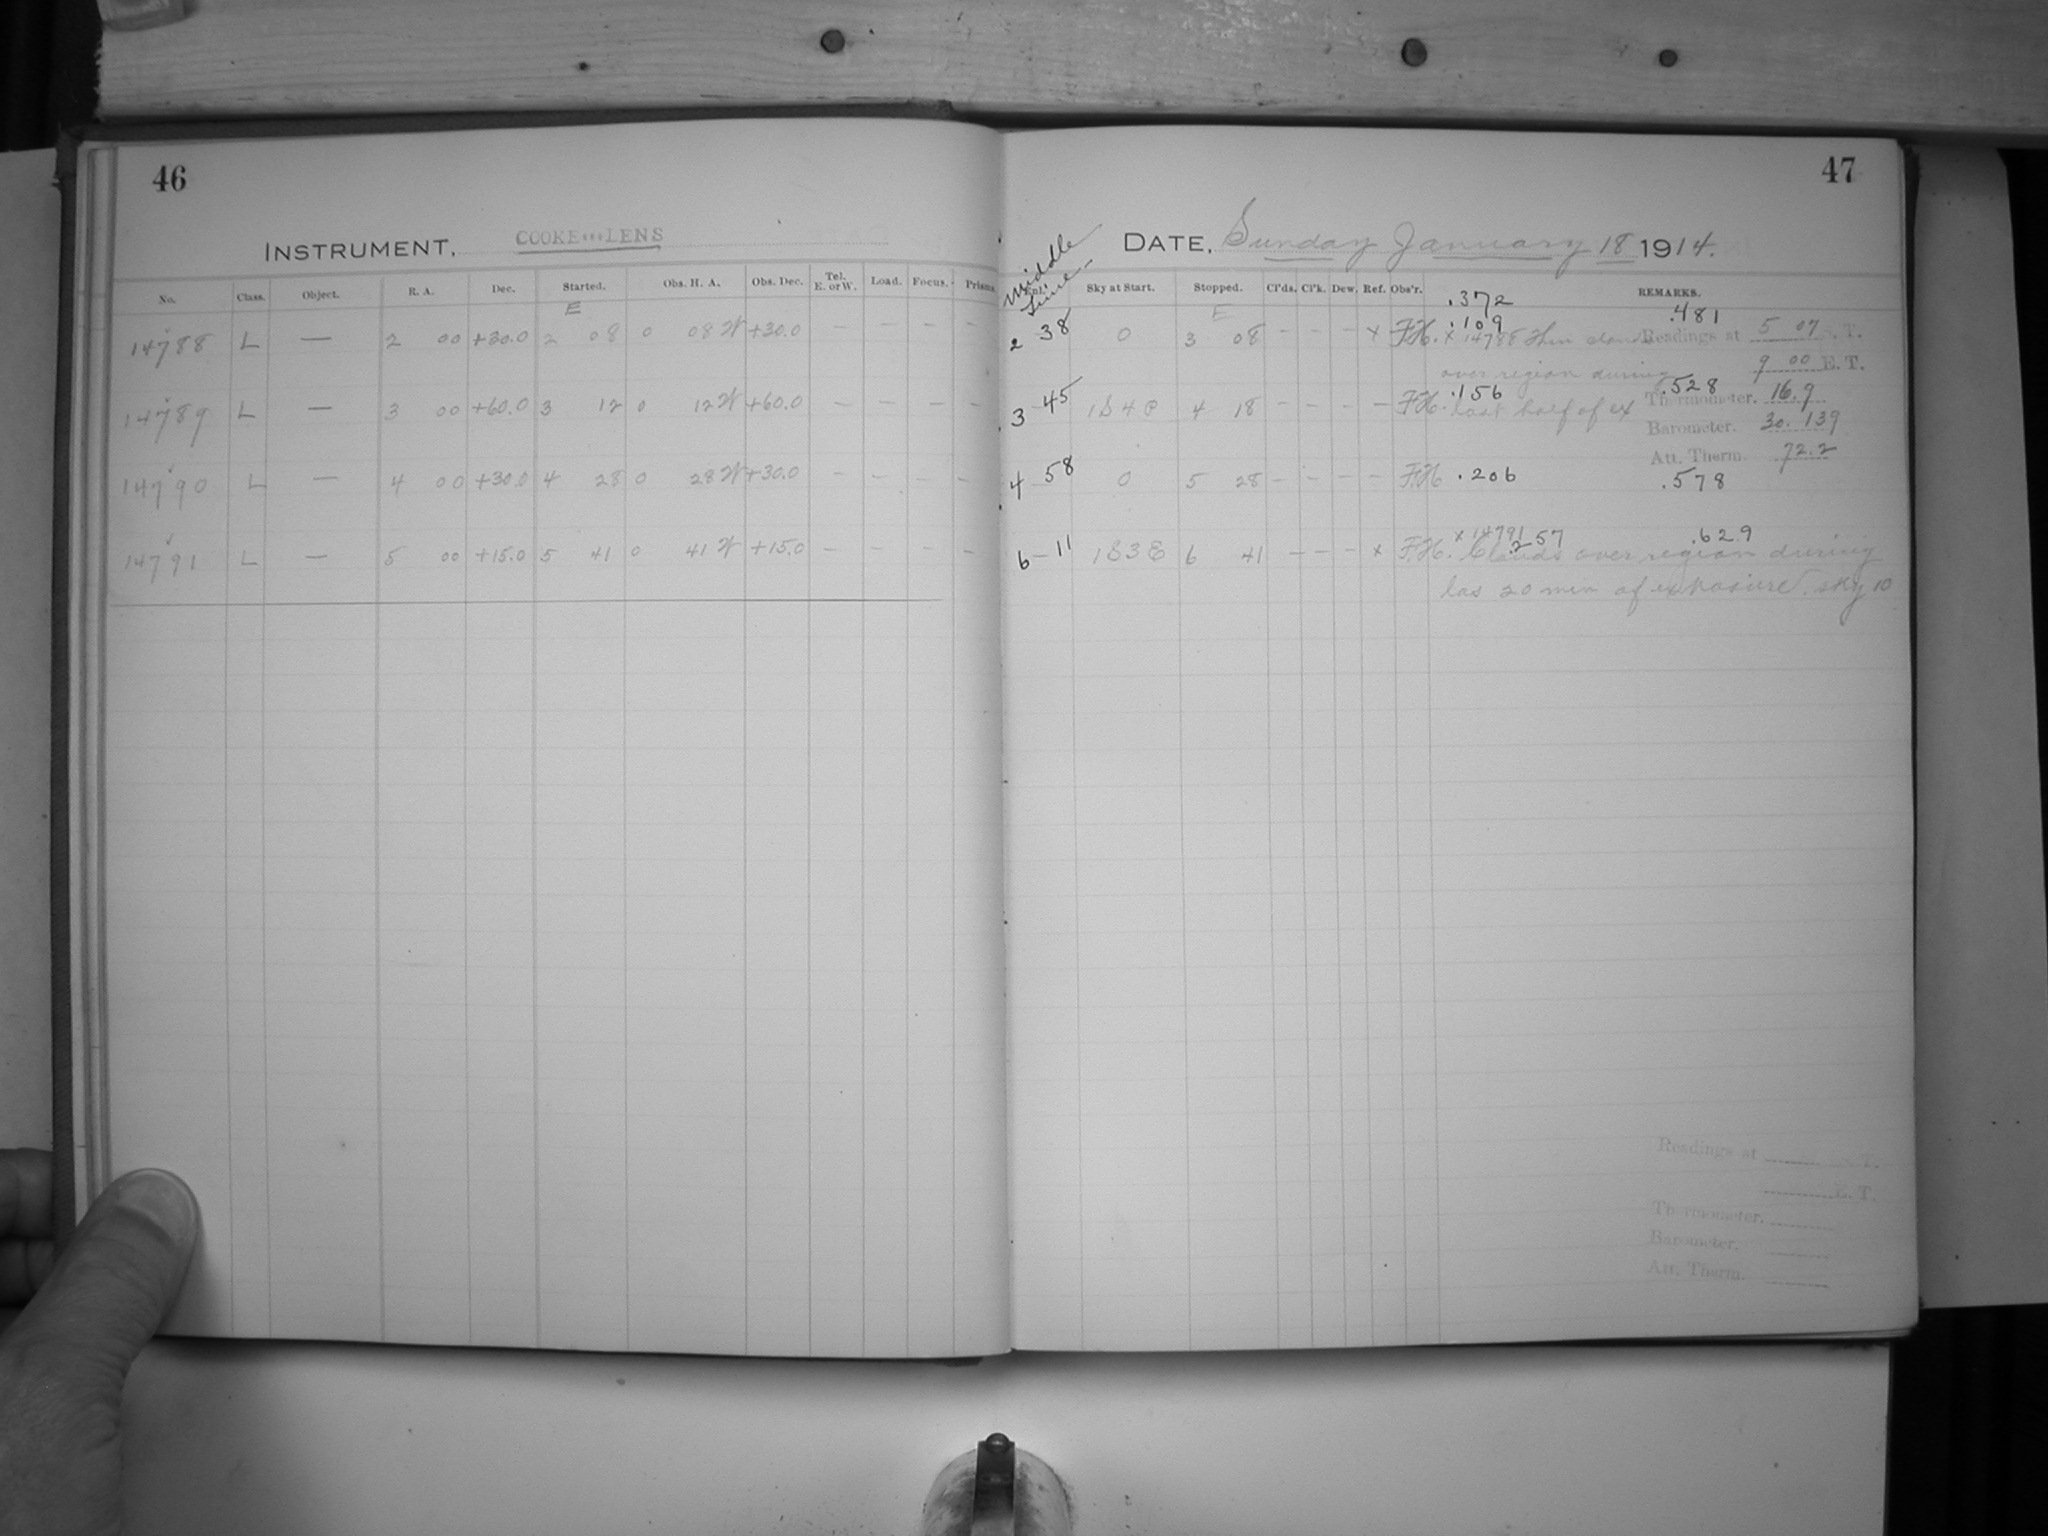 46
INSTRUMENT, COOKE LENS
No. Class. Object. R. A. Dec. Started. Obs. H. A. Obs. Dec. Tel. E. or W. Load. Focus. Prisms.
E
14788 L — 2 00 +30.0 2 08 0 08 W +30.0 — — — —
14789 L — 3 00 +60.0 3 12 0 12 W +60.0 — — — —
14790 L — 4 00 +30.0 4 28 0 28 W +30.0 — — — —
14791 L — 5 00 +15.0 5 41 0 41 W +15.0 — — — —
47
DATE, Sunday January 18 1914.
Middle Time
Sky at Start. Stopped. Cl'ds. Cl'k. Dew. Ref. Obs'r. REMARKS.
E
.372
.109 .481
2 38 0 3 08 – – – x F.H. x 14788 Thin clouds
over region during
last half of ex
Readings at 5 07 S. T.
9 00 E. T.
Thermometer. 16.9
Barometer. 30.139
Att. Therm. 72.2
3 45 1S4C 4 18 – – – – F.H. .156 .528
4 58 0 5 28 – – – – F.H. .206 .578
6 11 1S3E 6 41 – – – x F.H. x 14791 .257 .629
Clouds over region during
las 20 min of exposure. sky 10
Readings at S. T.
E. T.
Thermometer.
Barometer.
Att. Therm.